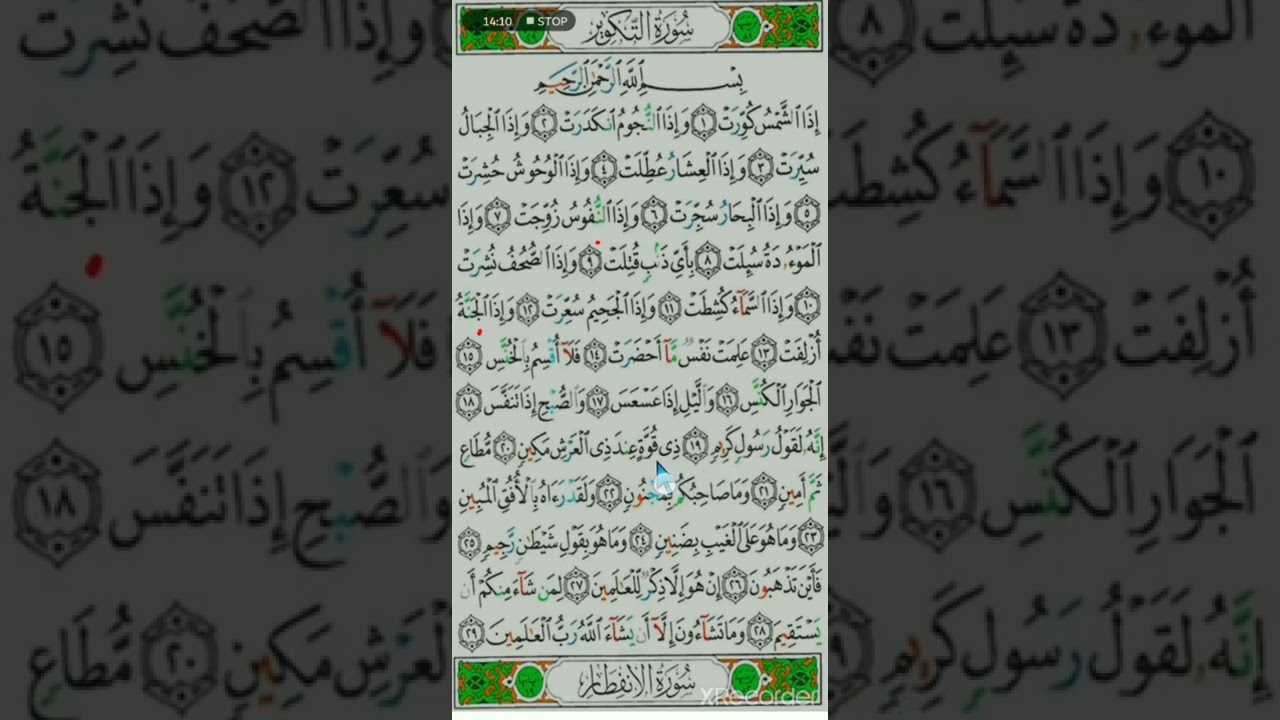 14:10 STOP
سُورَةُ التَّكْوِيرِ
بِسْمِ اللَّهِ الرَّحْمَٰنِ الرَّحِيمِ
إِذَا الشَّمْسُ كُوِّرَتْ ١ وَإِذَا النُّجُومُ انكَدَرَتْ ٢ وَإِذَا الْجِبَالُ
سُيِّرَتْ ٣ وَإِذَا الْعِشَارُ عُطِّلَتْ ٤ وَإِذَا الْوُحُوشُ حُشِرَتْ
٥ وَإِذَا الْبِحَارُ سُجِّرَتْ ٦ وَإِذَا النُّفُوسُ زُوِّجَتْ ٧ وَإِذَا
الْمَوْءُۥدَةُ سُئِلَتْ ٨ بِأَيِّ ذَنۢبٍ قُتِلَتْ ٩ وَإِذَا الصُّحُفُ نُشِرَتْ
١٠ وَإِذَا السَّمَآءُ كُشِطَتْ ١١ وَإِذَا الْجَحِيمُ سُعِّرَتْ ١٢ وَإِذَا الْجَنَّةُ
أُزْلِفَتْ ١٣ عَلِمَتْ نَفْسٌ مَّآ أَحْضَرَتْ ١٤ فَلَآ أُقْسِمُ بِالْخُنَّسِ ١٥
الْجَوَارِ الْكُنَّسِ ١٦ وَالَّيْلِ إِذَا عَسْعَسَ ١٧ وَالصُّبْحِ إِذَا تَنَفَّسَ ١٨
إِنَّهُۥ لَقَوْلُ رَسُولٍ كَرِيمٍ ١٩ ذِى قُوَّةٍ عِندَ ذِى الْعَرْشِ مَكِينٍ ٢٠ مُّطَاعٍ
ثَمَّ أَمِينٍ ٢١ وَمَا صَاحِبُكُم بِمَجْنُونٍ ٢٢ وَلَقَدْ رَءَاهُ بِالْأُفُقِ الْمُبِينِ
٢٣ وَمَا هُوَ عَلَى الْغَيْبِ بِضَنِينٍ ٢٤ وَمَا هُوَ بِقَوْلِ شَيْطَٰنٍ رَّجِيمٍ ٢٥
فَأَيْنَ تَذْهَبُونَ ٢٦ إِنْ هُوَ إِلَّا ذِكْرٌ لِّلْعَٰلَمِينَ ٢٧ لِمَن شَآءَ مِنكُمْ أَن
يَسْتَقِيمَ ٢٨ وَمَا تَشَآءُونَ إِلَّآ أَن يَشَآءَ اللَّهُ رَبُّ الْعَٰلَمِينَ ٢٩
سُورَةُ الِانفِطَارِ
XRecorder